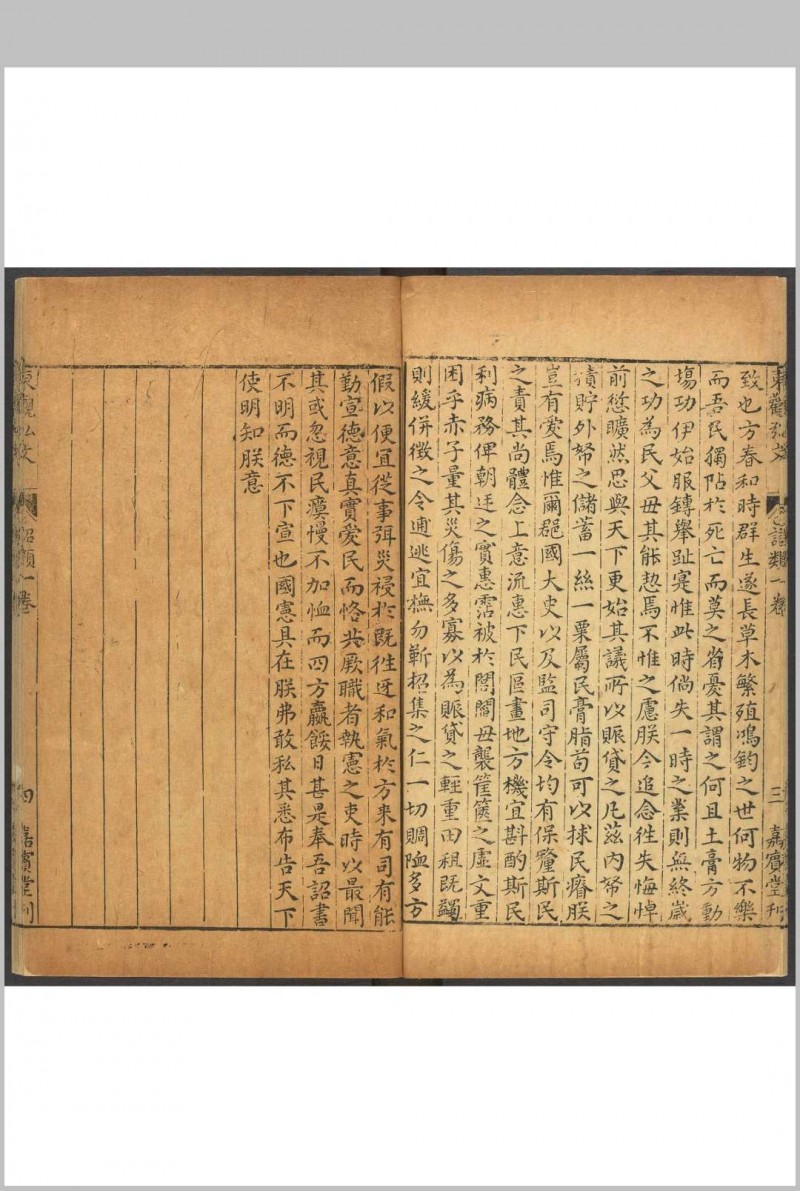 東觀弘文 詔類一卷 三 嘉賓堂刊
致也方春和時群生遂長草木繁殖鴻鈞之世何物不樂
而吾民獨阽於死亡而莫之省憂其謂之何且土膏方動
場功伊始服鎛舉趾寔惟此時倘失一時之業則無終歲
之功為民父毋其能恝焉不惟之慮朕今追念徃失悔悼
前愆曠然思與天下更始其議所以賑貸之凡茲內帑之
積貯外帑之儲蓄一絲一粟屬民膏脂苟可以捄民瘠朕
豈有愛焉惟爾郡國大吏以及監司守令均有保釐斯民
之責其尚體念上意流惠下民區畫地方機宜斟酌斯民
利病務俾朝廷之實惠霑被於閭閻毋襲筐篋之虛文重
困乎赤子量其災傷之多寡以為賑貸之輕重田租既蠲
則緩併徵之令逋逃宜撫勿靳招集之仁一切賙䘏多方
假以便宜從事弭災祲於既徃迓和氣於方来有司有能
勤宣德意真實愛民而恪共厥職者執憲之吏時以最聞
其或忽視民瘼慢不加恤而四方羸餒日甚是奉吾詔書
不明而德不下宣也國憲具在朕弗敢私其悉布告天下
使明知朕意
東觀弘文 詔類一卷 四 嘉賓堂刊